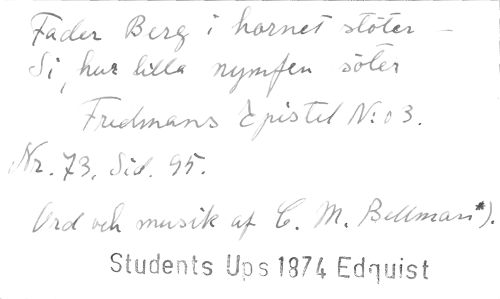 Fader Berg i hornet stöter –
Si, hur lilla nymfen söter
Fredmans Epistel N:o 3.
Nr. 73, Sid. 95.
Ord och musik af C. M. Bellman*).
Students Ups 1874 Edquist